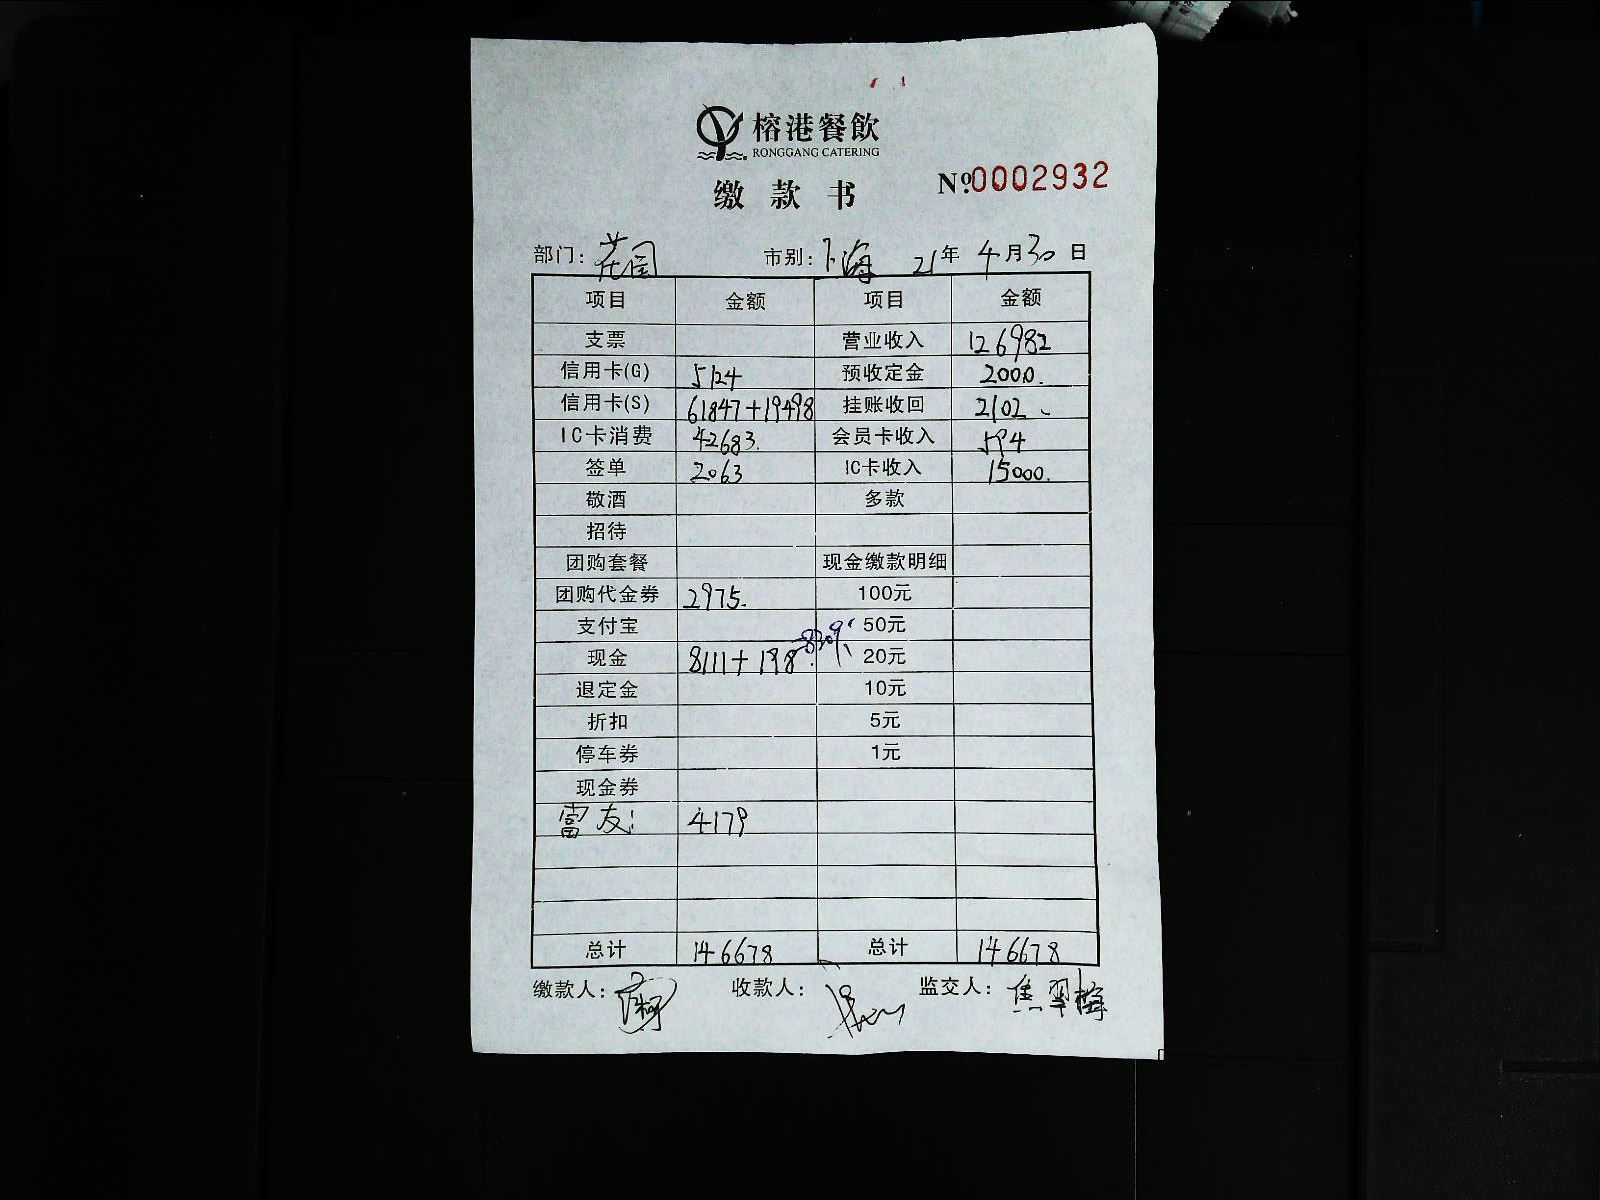 榕港餐飲
RONGGANG CATERING
缴款书
Nº:0002932
部门: 花园 市别: 上海 21年 4月30日
项目 金额 项目 金额
支票 营业收入 126982
信用卡(G) 5124 预收定金 2000.
信用卡(S) 61847+19498 挂账收回 2102
IC卡消费 42683. 会员卡收入 594
签单 2063 IC卡收入 15000.
敬酒 多款
招待
团购套餐 现金缴款明细
团购代金券 2975. 100元
支付宝 50元
现金 8111+198. 8309 20元
退定金 10元
折扣 5元
停车券 1元
现金券
富友: 4179
总计 146678 总计 146678
缴款人: 收款人: 监交人: 焦翠梅